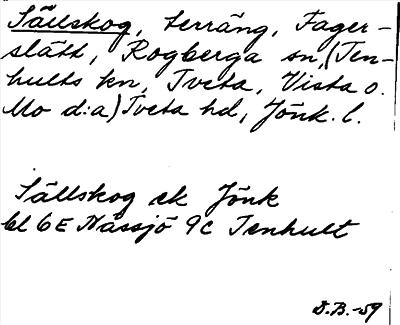 Sällskog, terräng, Fager-
slätt, Rogberga sn, (Ten-
hults kn, Tveta, Vista o.
Mo d:a) Tveta hd, Jönk. l.
Sällskog ek Jönk
bl 6E Nässjö 9c Tenhult
D.B. -59